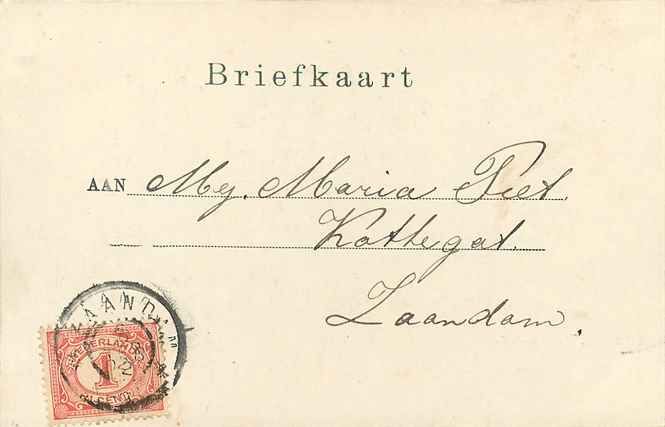 Briefkaart
AAN Mej. Maria Piet.
Kattegat.
Zaandam.
ZAANDAM
NEDERLAND
1
CENT